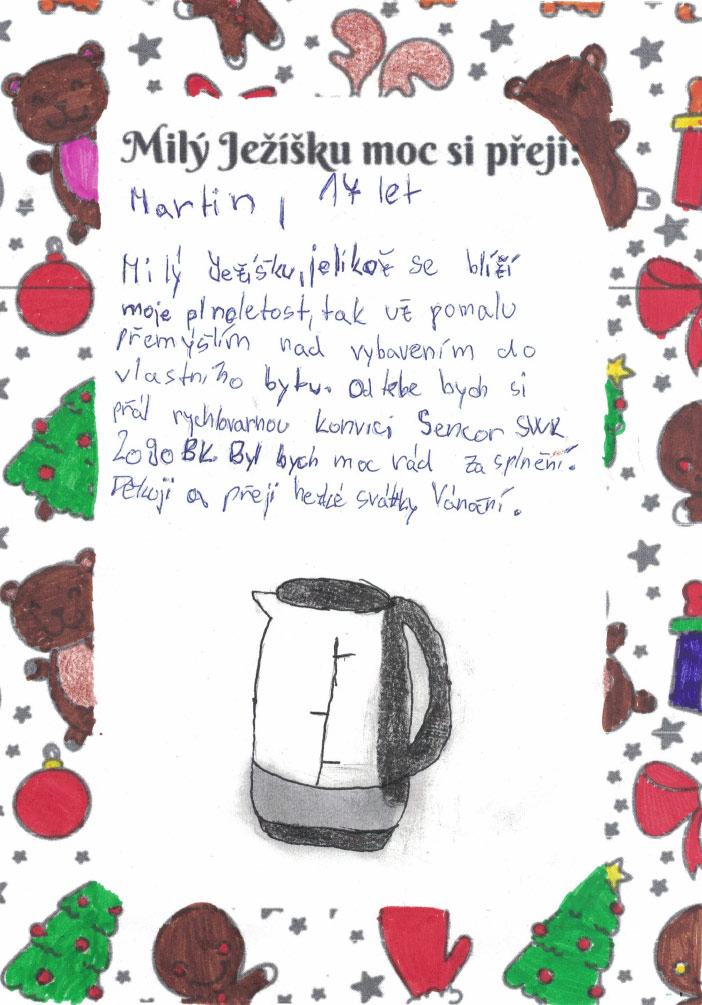 Milý Ježíšku moc si přeji:
Martin, 17 let
Milý Ježíšku, jelikož se blíží
moje plnoletost, tak už pomalu
přemýšlím nad vybavením do
vlastního bytu. Od tebe bych si
přál rychlovarnou konvici Sencor SWK
2090BK Byl bych moc rád za splnění.
Děkuji a přeji hezké svátky Vánoční.